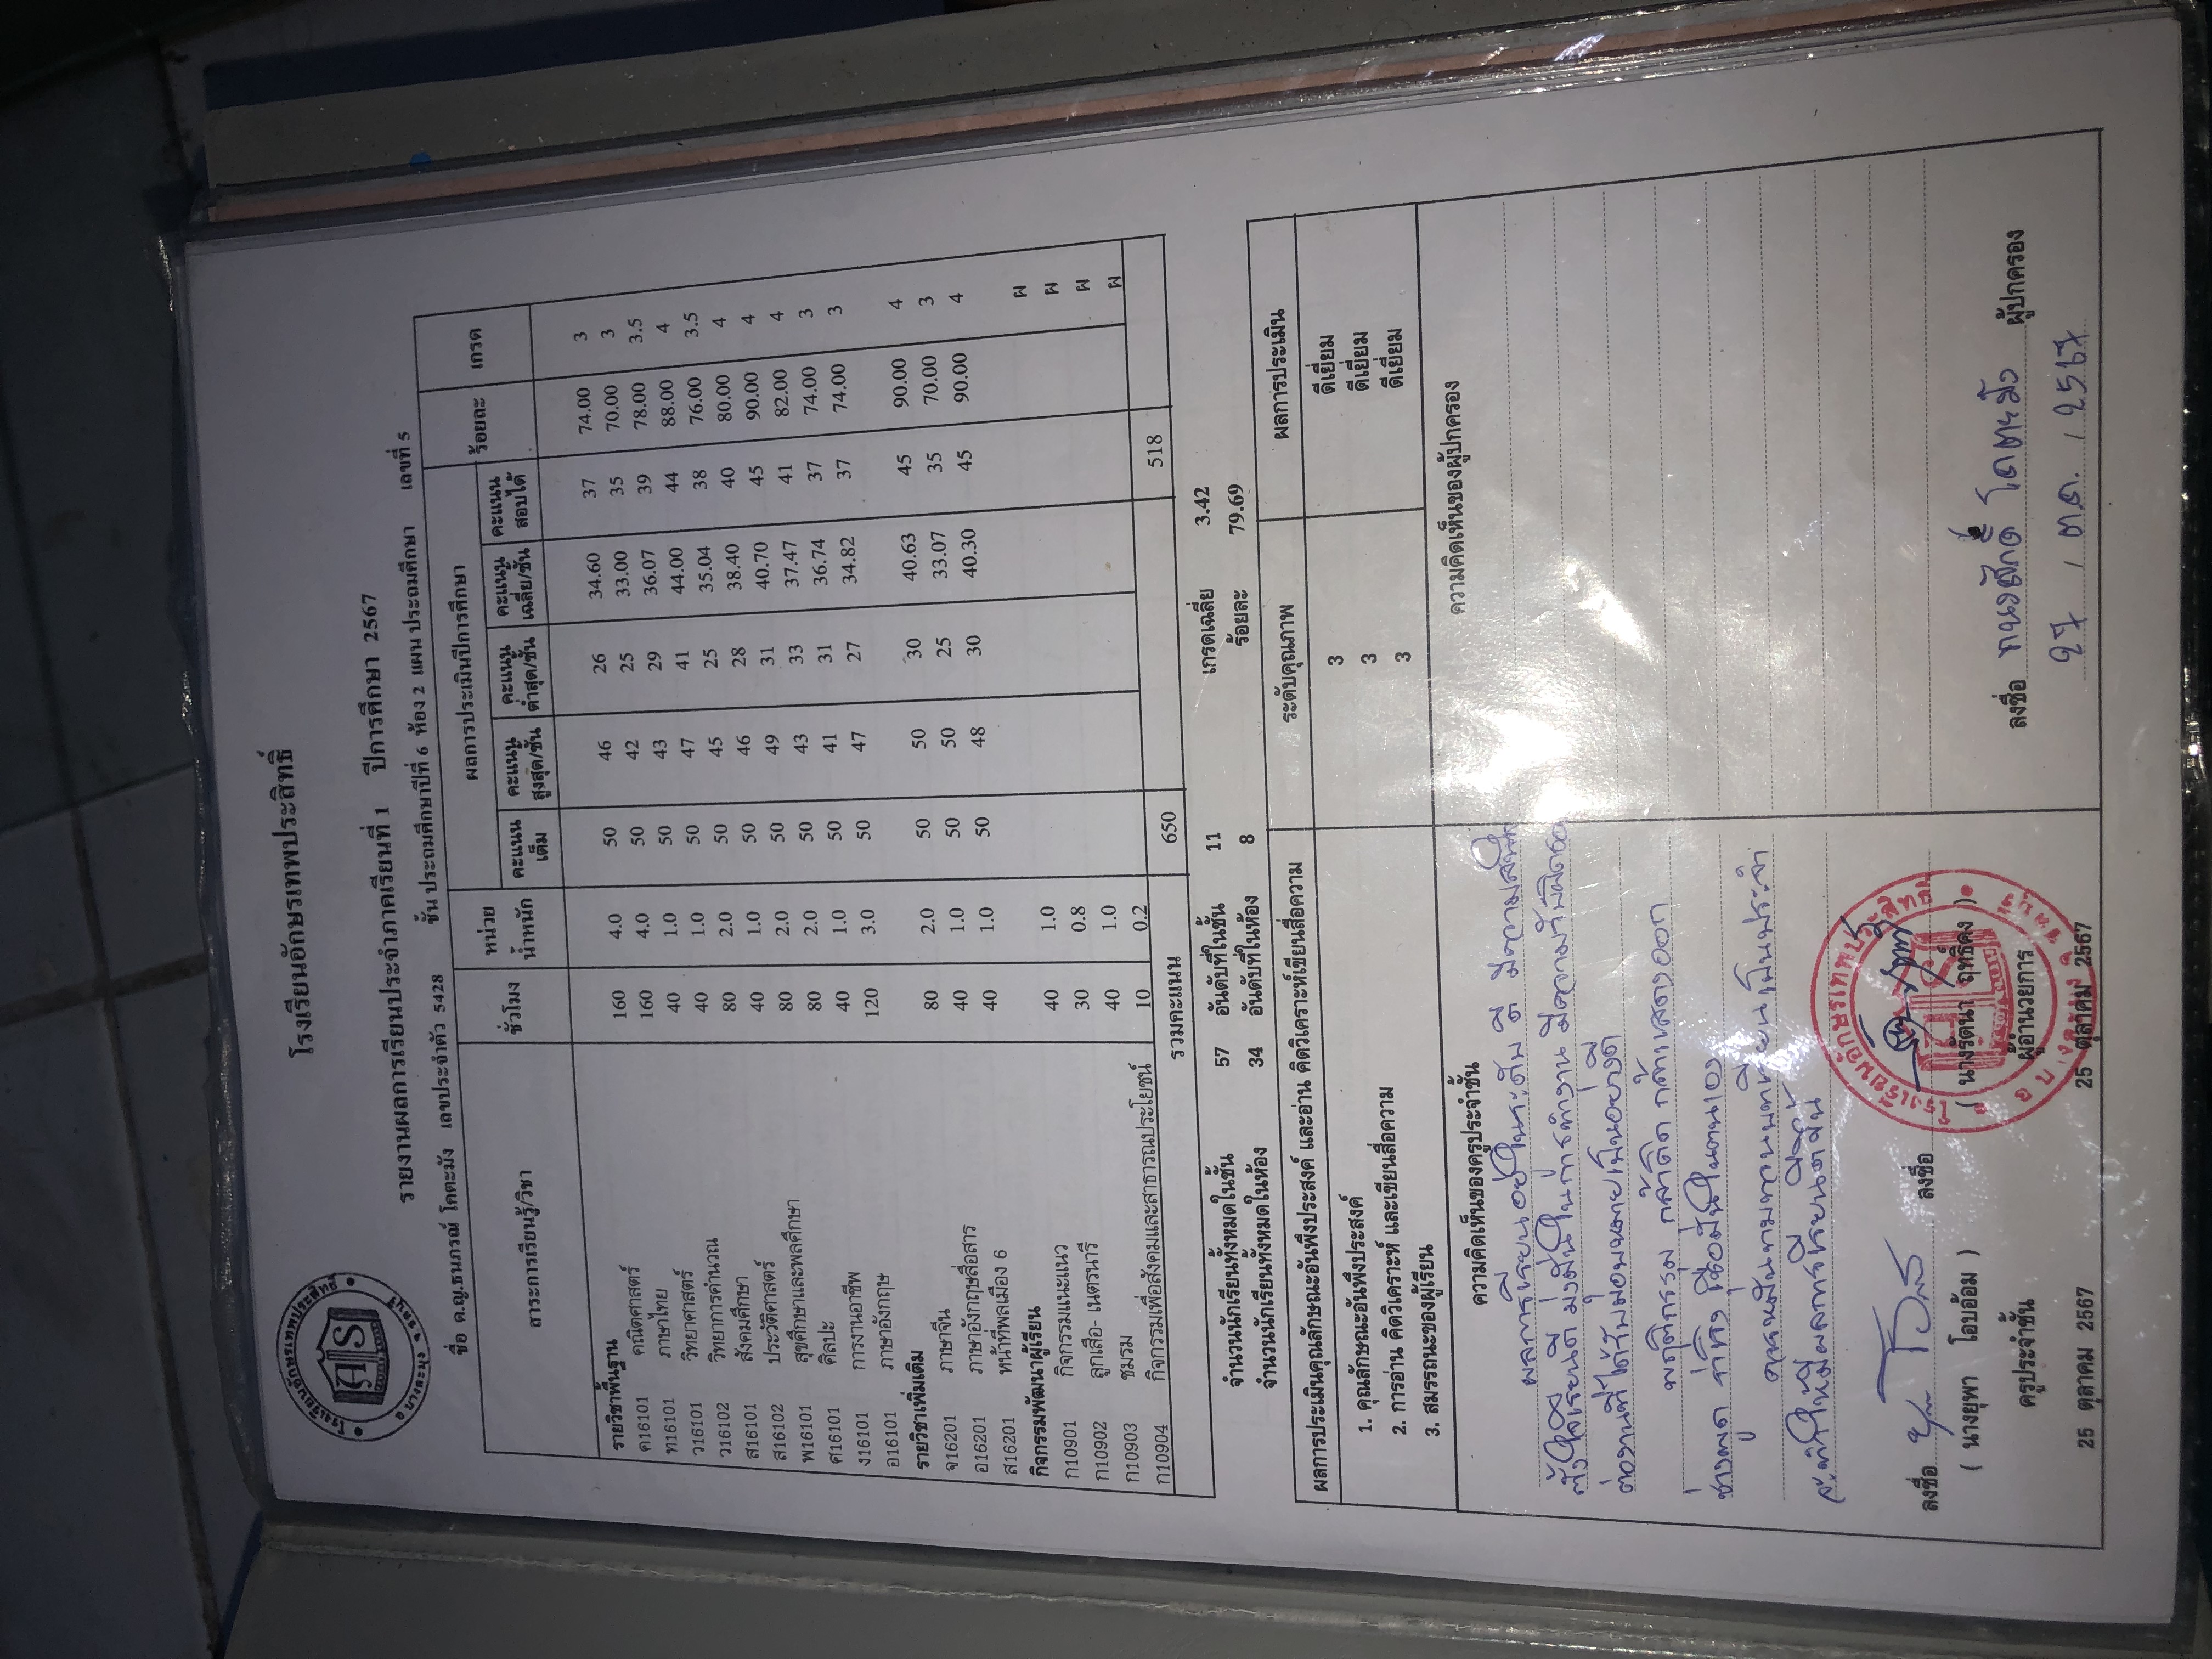 โรงเรียนอักษรเทพประสิทธิ์
รายงานผลการเรียนประจำภาคเรียนที่ 1 ปีการศึกษา 2567
ชื่อ ด.ญ.ธนภรณ์ โคตะมัง เลขประจำตัว 5428 ชั้น ประถมศึกษาปีที่ 6 ห้อง 2 แผน ประถมศึกษา เลขที่ 5
สาระการเรียนรู้/วิชา ชั่วโมง หน่วยน้ำหนัก ผลการประเมินปีการศึกษา ร้อยละ เกรด
คะแนนเต็ม คะแนนสูงสุด/ชั้น คะแนนต่ำสุด/ชั้น คะแนนเฉลี่ย/ชั้น คะแนนสอบได้
รายวิชาพื้นฐาน
ค16101 คณิตศาสตร์ 160 4.0 50 46 26 34.60 37 74.00 3
ท16101 ภาษาไทย 160 4.0 50 42 25 33.00 35 70.00 3
ว16101 วิทยาศาสตร์ 40 1.0 50 43 29 36.07 39 78.00 3.5
ว16102 วิทยาการคำนวณ 40 1.0 50 47 41 44.00 44 88.00 4
ส16101 สังคมศึกษา 80 2.0 50 45 25 35.04 38 76.00 3.5
ส16102 ประวัติศาสตร์ 40 1.0 50 46 28 38.40 40 80.00 4
พ16101 สุขศึกษาและพลศึกษา 80 2.0 50 49 31 40.70 45 90.00 4
ศ16101 ศิลปะ 80 2.0 50 43 33 37.47 41 82.00 4
ง16101 การงานอาชีพ 40 1.0 50 41 31 36.74 37 74.00 3
อ16101 ภาษาอังกฤษ 120 3.0 50 47 27 34.82 37 74.00 3
รายวิชาเพิ่มเติม
จ16201 ภาษาจีน 80 2.0 50 50 30 40.63 45 90.00 4
อ16201 ภาษาอังกฤษสื่อสาร 40 1.0 50 50 25 33.07 35 70.00 3
ส16201 หน้าที่พลเมือง 6 40 1.0 50 48 30 40.30 45 90.00 4
กิจกรรมพัฒนาผู้เรียน
ก10901 กิจกรรมแนะแนว 40 1.0 ผ
ก10902 ลูกเสือ- เนตรนารี 30 0.8 ผ
ก10903 ชมรม 40 1.0 ผ
ก10904 กิจกรรมเพื่อสังคมและสาธารณประโยชน์ 10 0.2 ผ
รวมคะแนน 650 518
จำนวนนักเรียนทั้งหมดในชั้น 57 อันดับที่ในชั้น 11 เกรดเฉลี่ย 3.42
จำนวนนักเรียนทั้งหมดในห้อง 34 อันดับที่ในห้อง 8 ร้อยละ 79.69
ผลการประเมินคุณลักษณะอันพึงประสงค์ และอ่าน คิดวิเคราะห์เขียนสื่อความ ระดับคุณภาพ ผลการประเมิน
1. คุณลักษณะอันพึงประสงค์ 3 ดีเยี่ยม
2. การอ่าน คิดวิเคราะห์ และเขียนสื่อความ 3 ดีเยี่ยม
3. สมรรถนะของผู้เรียน 3 ดีเยี่ยม
ความคิดเห็นของครูประจำชั้น ความคิดเห็นของผู้ปกครอง
ผลการเรียนอยู่ในระดับ ดี มีความสนใจ
ตั้งใจเรียนดี มุ่งมั่นในการทำงาน มีความรับผิดชอบ
ต่องานที่ได้รับมอบหมายเป็นอย่างดี
พฤติกรรม กล้าคิด กล้าแสดงออก
ช่างพูด ร่าเริง เชื่อมั่นในตนเอง
ควรหมั่นทบทวนบทเรียนเป็นประจำ
จะทำให้มีผลการเรียนดีขึ้น
ลงชื่อ ลงชื่อ ลงชื่อ ทนงศักดิ์ โคตะมัง ผู้ปกครอง
( นางยุพา โอบอ้อม ) ( นางรัตนา ฤทธิ์คง ) 27 / ต.ค. / 2567
ครูประจำชั้น ผู้อำนวยการ
25 ตุลาคม 2567 25 ตุลาคม 2567